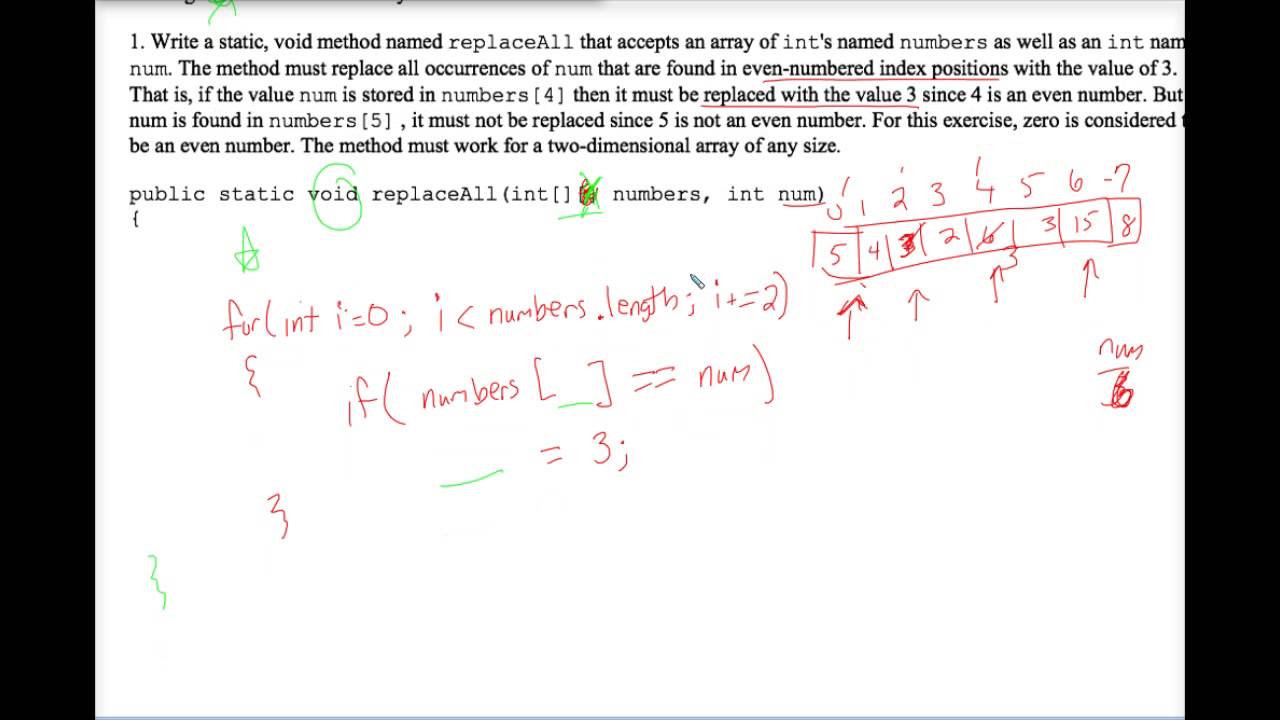 1. Write a static, void method named replaceAll that accepts an array of int's named numbers as well as an int nam
num. The method must replace all occurrences of num that are found in even-numbered index positions with the value of 3.
That is, if the value num is stored in numbers[4] then it must be replaced with the value 3 since 4 is an even number. But
num is found in numbers[5] , it must not be replaced since 5 is not an even number. For this exercise, zero is considered t
be an even number. The method must work for a two-dimensional array of any size.
public static void replaceAll(int[] numbers, int num)
{
0 1 2 3 4 5 6 -7
5 4 3 2 6 3 15 8
3
for(int i=0; i < numbers.length; i+=2)
{
num
6
if( numbers [ __ ] == num)
__ = 3;
}
}